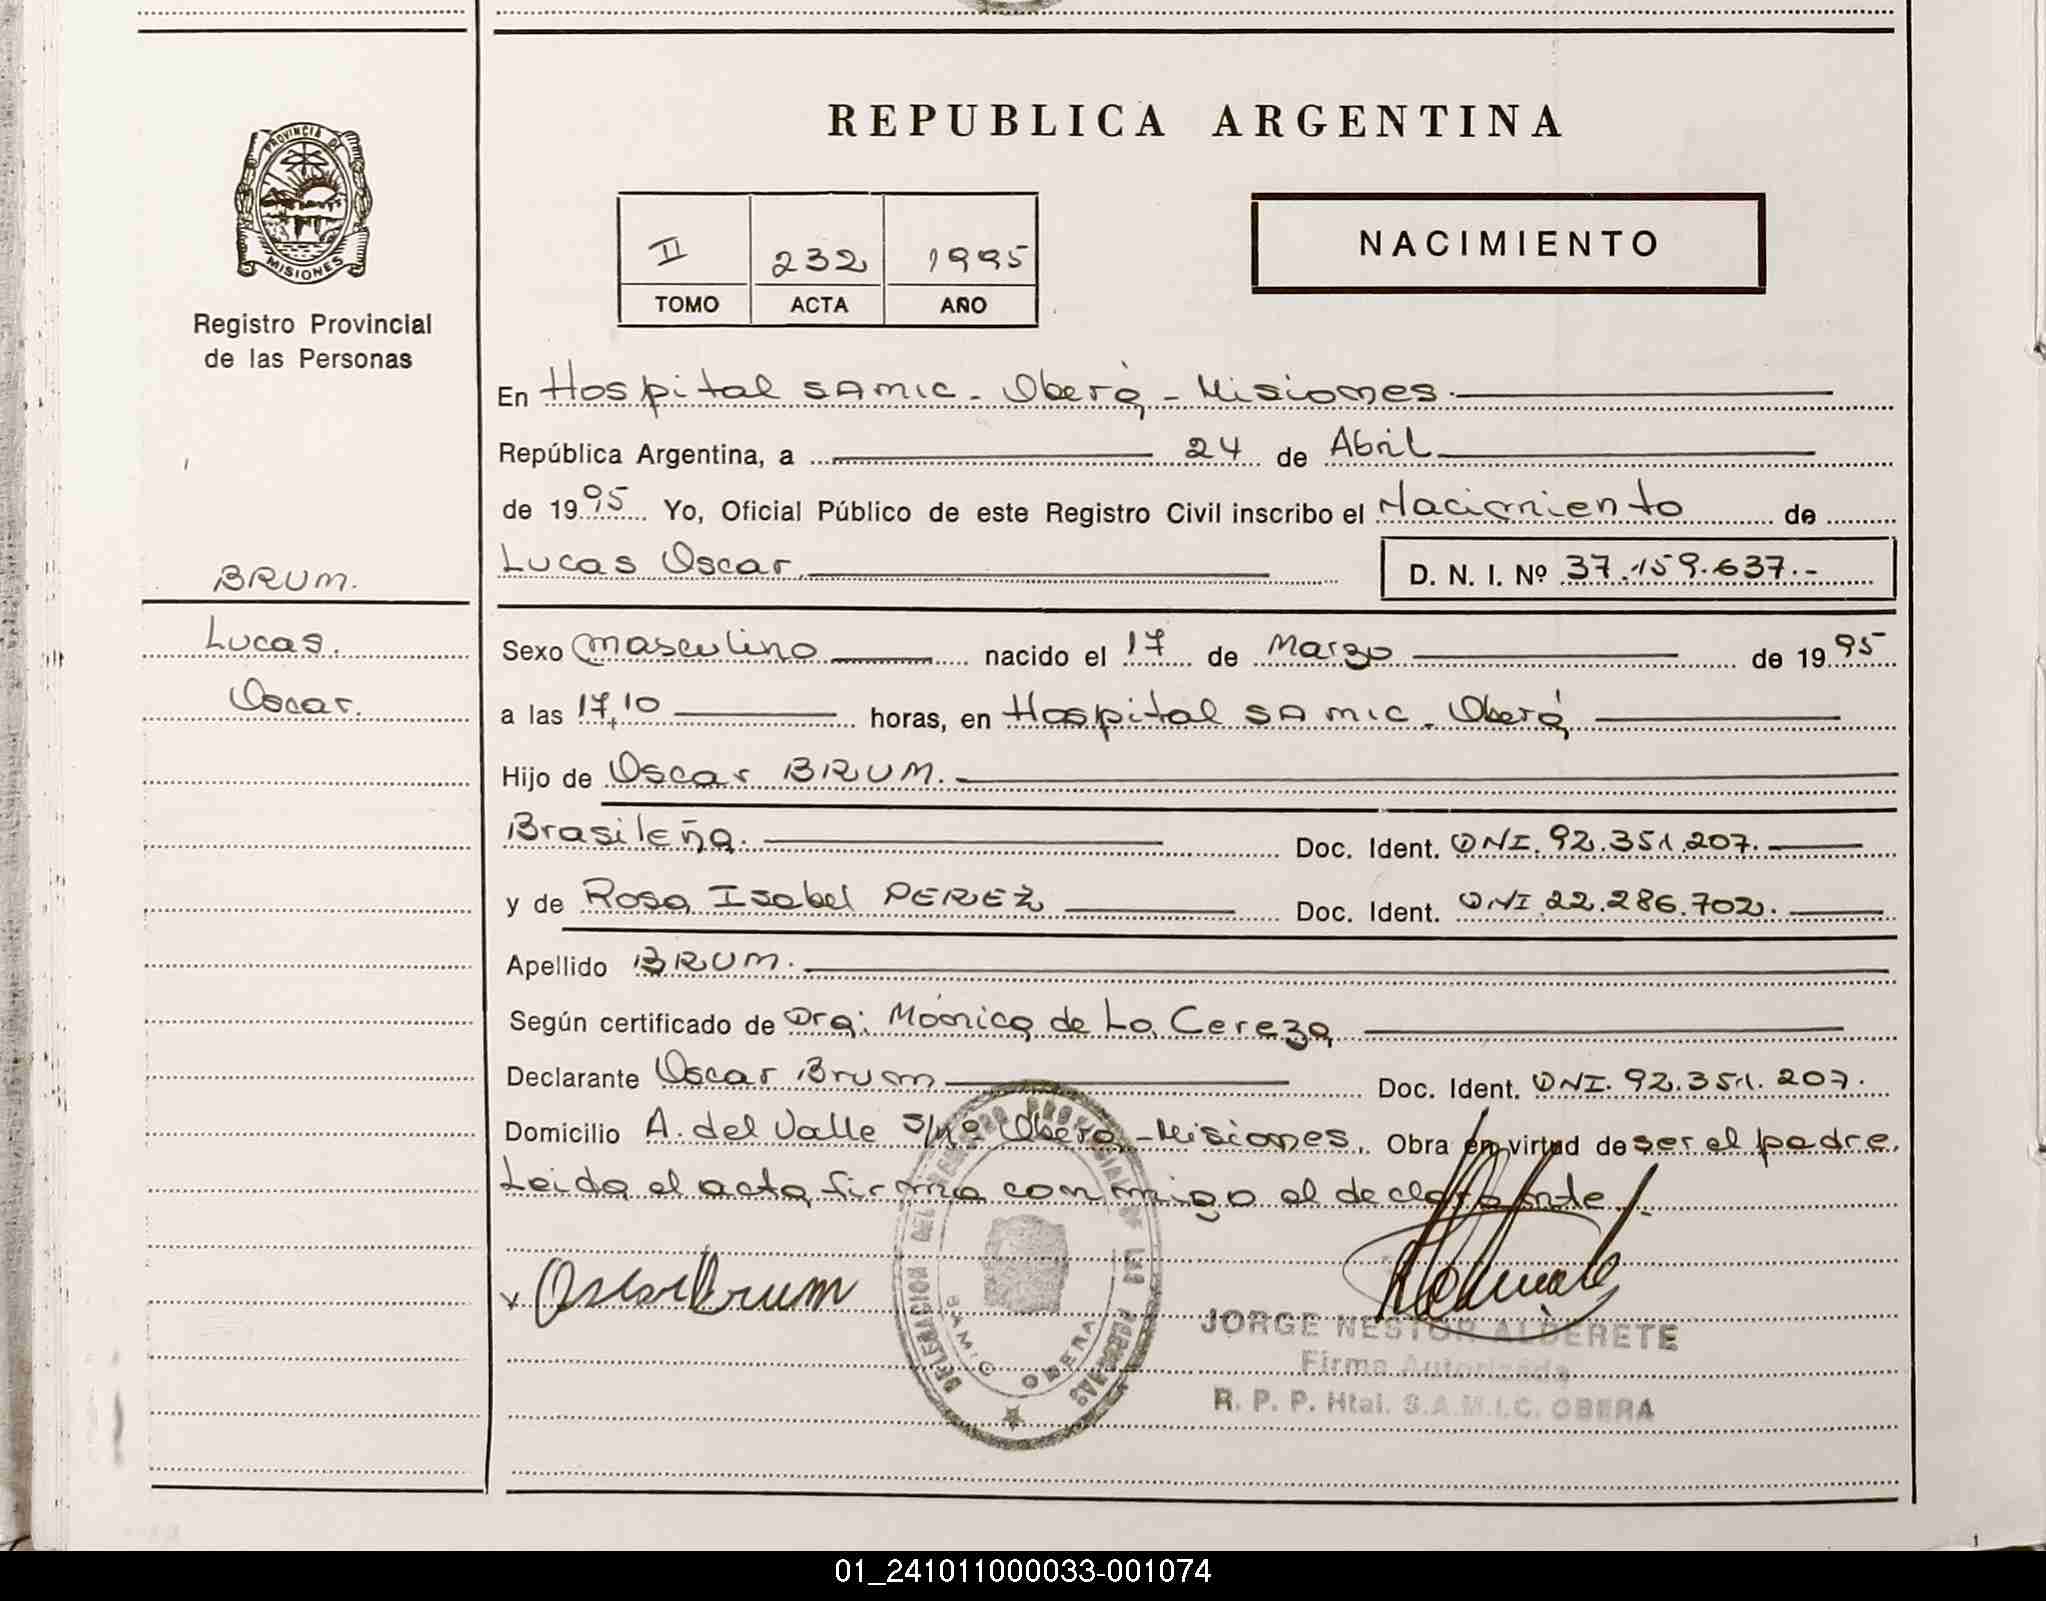 REPUBLICA ARGENTINA
PROVINCIA DE MISIONES
Registro Provincial
de las Personas
II 232 1995
TOMO ACTA AÑO
NACIMIENTO
En Hospital SAMIC - Oberá - Misiones.
República Argentina, a 24 de Abril
de 1995 Yo, Oficial Público de este Registro Civil inscribo el Nacimiento de
Lucas Oscar D. N. I. Nº 37.159.637.-
BRUM.
Lucas.
Oscar.
Sexo masculino nacido el 17 de Marzo de 1995
a las 17,10 horas, en Hospital SAMIC - Oberá
Hijo de Oscar BRUM.
Brasileña. Doc. Ident. DNI. 92.351.207.
y de Rosa Isabel PEREZ Doc. Ident. DNI 22.286.702.
Apellido BRUM.
Según certificado de Dra: Mónica de La Cereza
Declarante Oscar Brum Doc. Ident. DNI. 92.351.207.
Domicilio A. del Valle S/Nº Oberá - Misiones. Obra en virtud de ser el padre.
Leida el acta firma conmigo el declarante.
Oscar Brum
DELEGACION DEL REGISTRO PROVINCIAL DE LAS PERSONAS
SAMIC OBERA
JORGE NESTOR ALDERETE
Firma Autorizada
R. P. P. Htal. S.A.M.I.C. OBERA
01_241011000033-001074